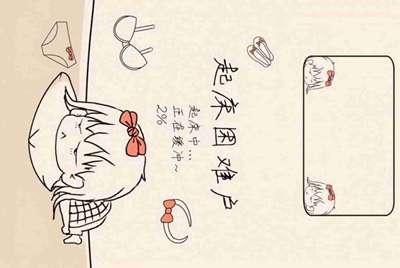 起床困难户
起床中...
正在缓冲~
2%